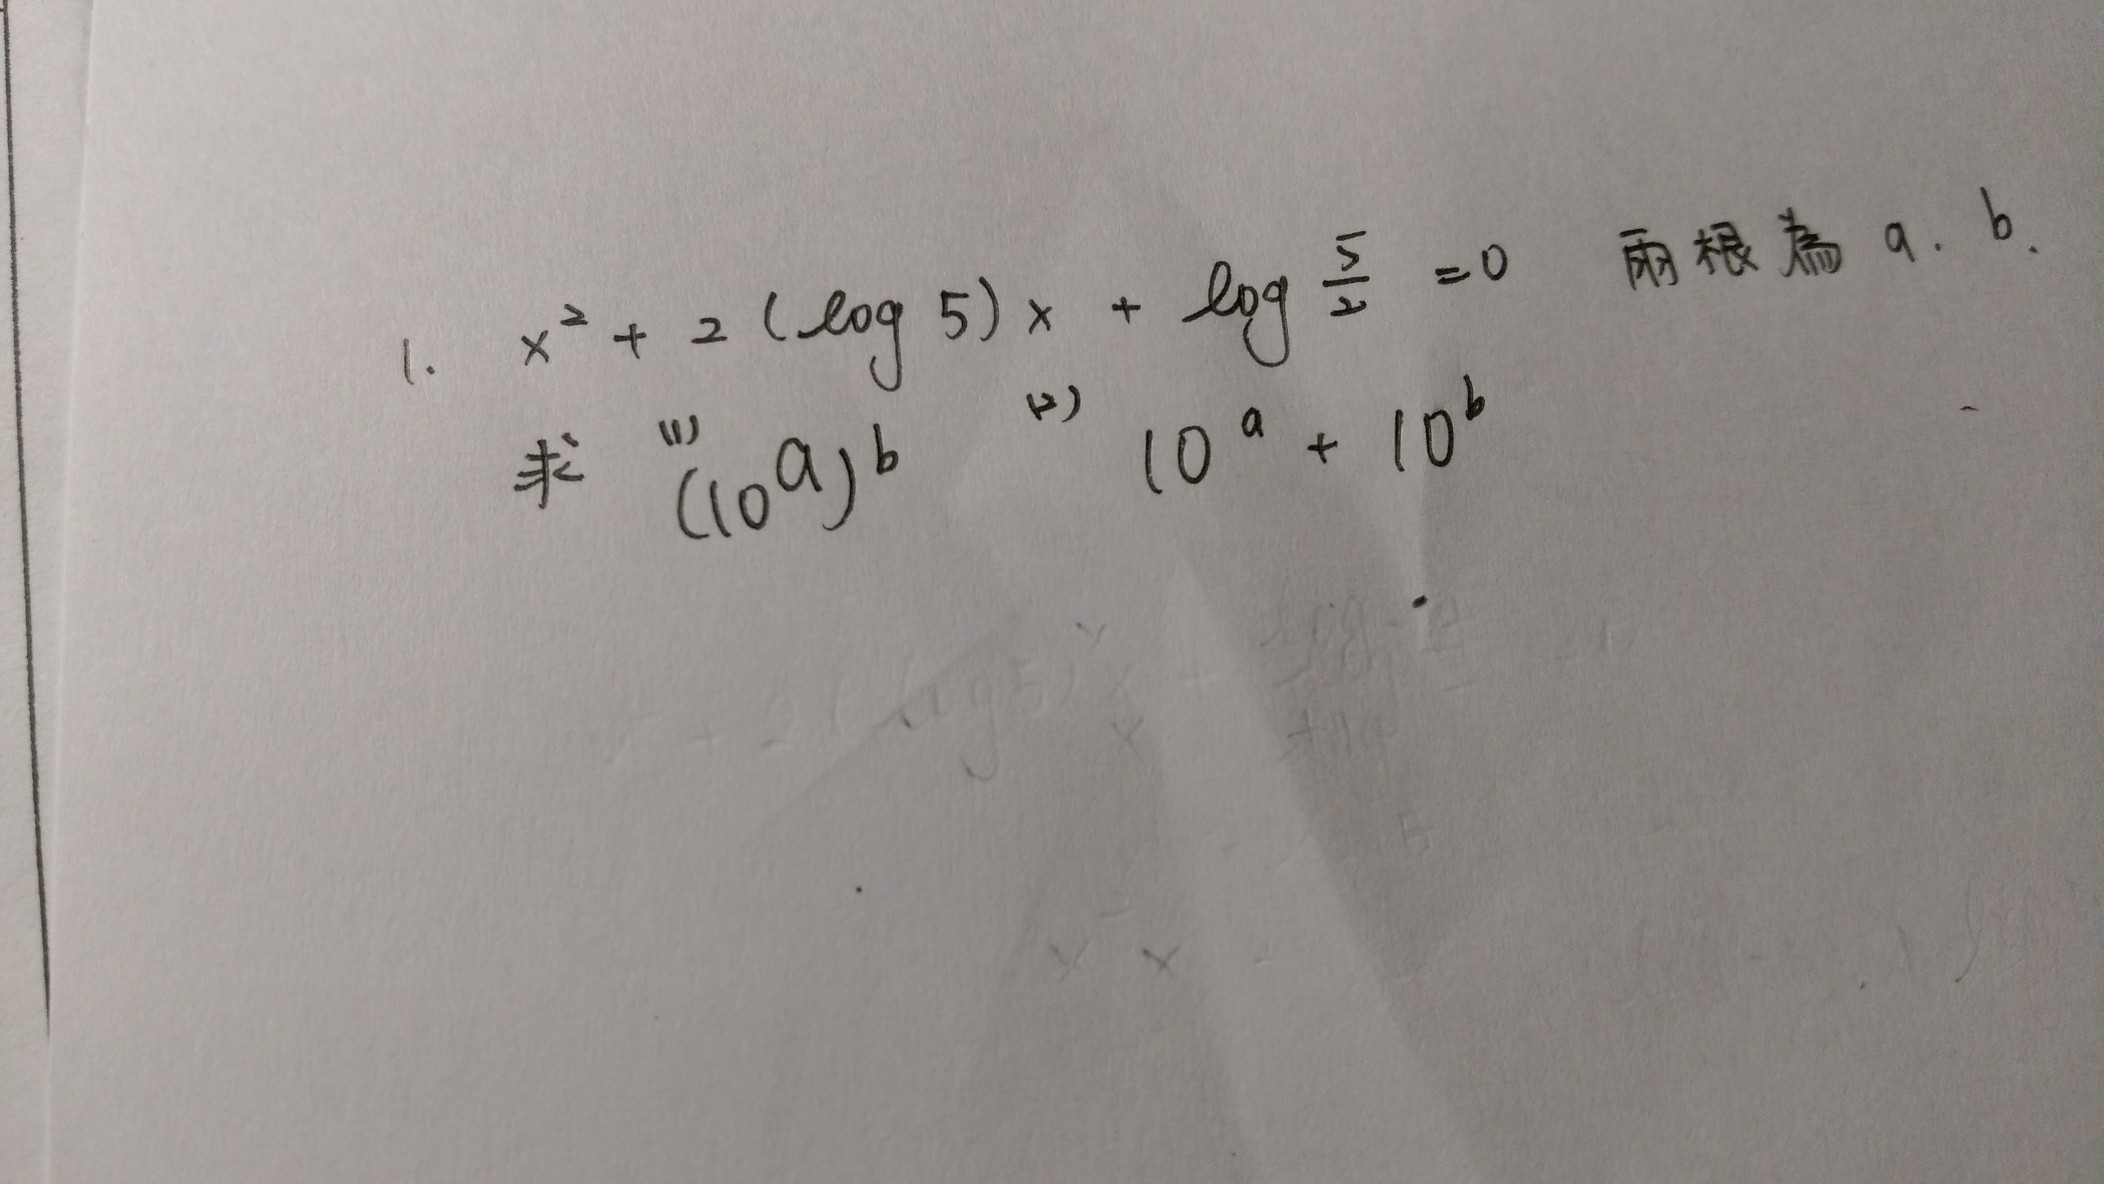 1. x² + 2 (log 5) x + log 5/2 = 0 兩根為 a . b .
求 (1) (10^a)^b (2) 10^a + 10^b